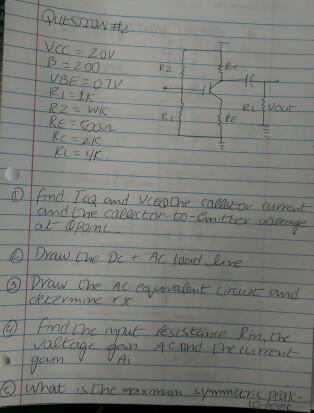 QUESTION #2
VCC = 20V
B = 200
VBE = 07V
R1 = 1K
R2 = WK
RE = 500Ω
RC = 2K
RL = 4K
R2
RC
R1
RE
RL
Vout
① find ICQ and VCEQ the collector current
and the collector-to-emitter voltage
at Q point
② Draw the DC + AC load line
③ Draw the AC equivalent circuit and
determine rπ
④ find the input resistance Rin, the
voltage gain AC and the current
gain Ai
⑤ What is the maximum symmetric peak-